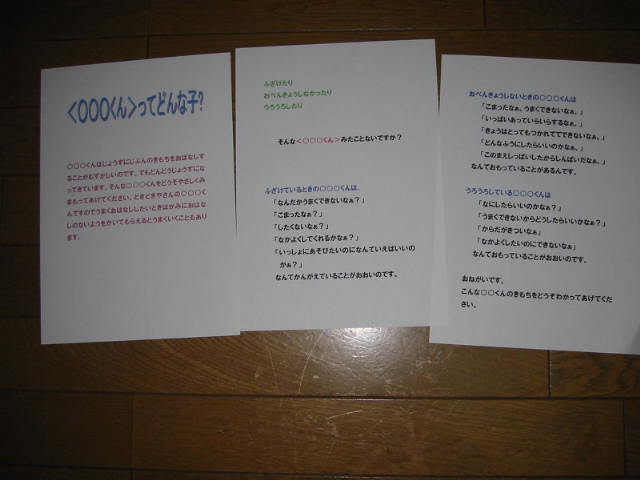 <○○○くん>ってどんな子?
○○○くんはじょうずにじぶんのきもちをおはなしす
ることがむずかしいのです。でもどんどんじょうずにな
ってきています。そんな○○○くんをどうぞやさしくみ
まもってあげてください。ときどきやさんの○○○く
んですのでうまくおはなししたいときはかみにおはな
しのないようをかいてもらえるとうまくいくこともあり
ます。
ふざけたり
おべんきょうしなかったり
うろうろしたり
そんな<○○○くん>みたことないですか?
ふざけているときの○○○くんは、
「なんだかうまくできないなぁ?」
「こまったなぁ?」
「したくないなぁ?」
「なかよくしてくれるかなぁ?」
「いっしょにあそびたいのになんていえばいいの
かぁ?」
なんてかんがえていることがおおいのです。
おべんきょうしないときの○○○くんは
「こまったなぁ。うまくできないなぁ。」
「いっぱいあっていらいらするなぁ。」
「きょうはとってもつかれててできないなぁ。」
「どんなふうにしたらいいのかなぁ。」
「このまえしっぱいしたからしんぱいだなぁ。」
なんておもっていることがあるんです。
うろうろしている○○○くんは
「なにしたらいいのかなぁ?」
「うまくできないからどうしたらいいかなぁ?」
「からだがきついなぁ」
「なかよくしたいのにできないなぁ」
なんておもっていることがおおいのです。
おねがいです。
こんな○○くんのきもちをどうぞわかってあげてくだ
さい。